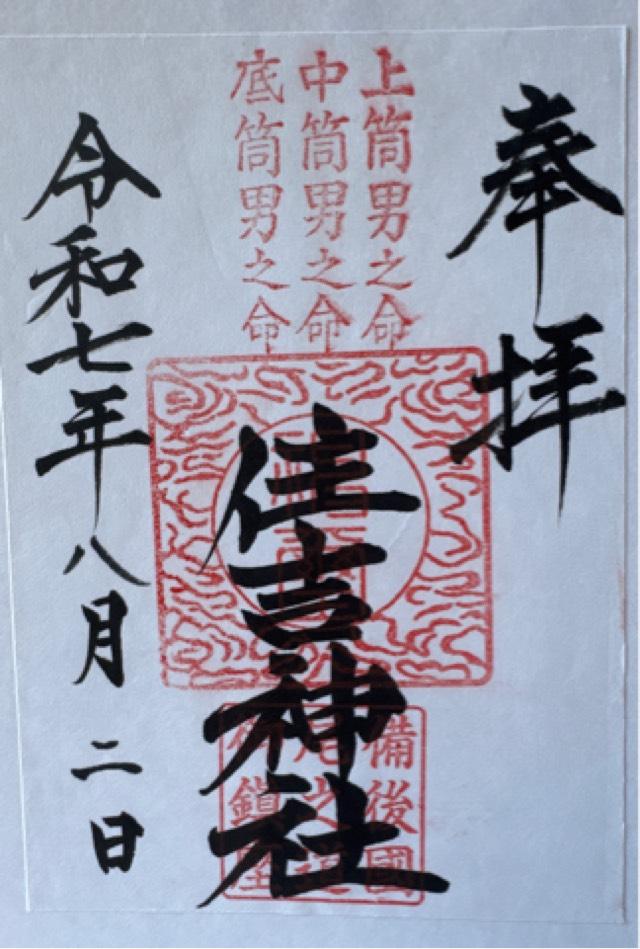 奉拝
上筒男之命
中筒男之命
底筒男之命
住吉神社
備後國
尾之道
御鎮座
令和七年八月二日